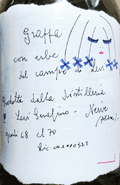 Grappa
con erbe
del campo di Levi
Prodotta dalla Distilleria
Levi Serafino - Neive
gradi 48 cl 70